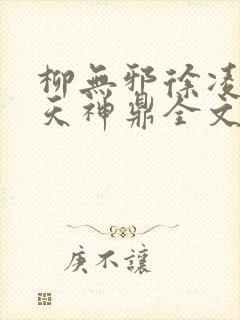 柳無邪徐凌
天神鼎全文
庚不讓